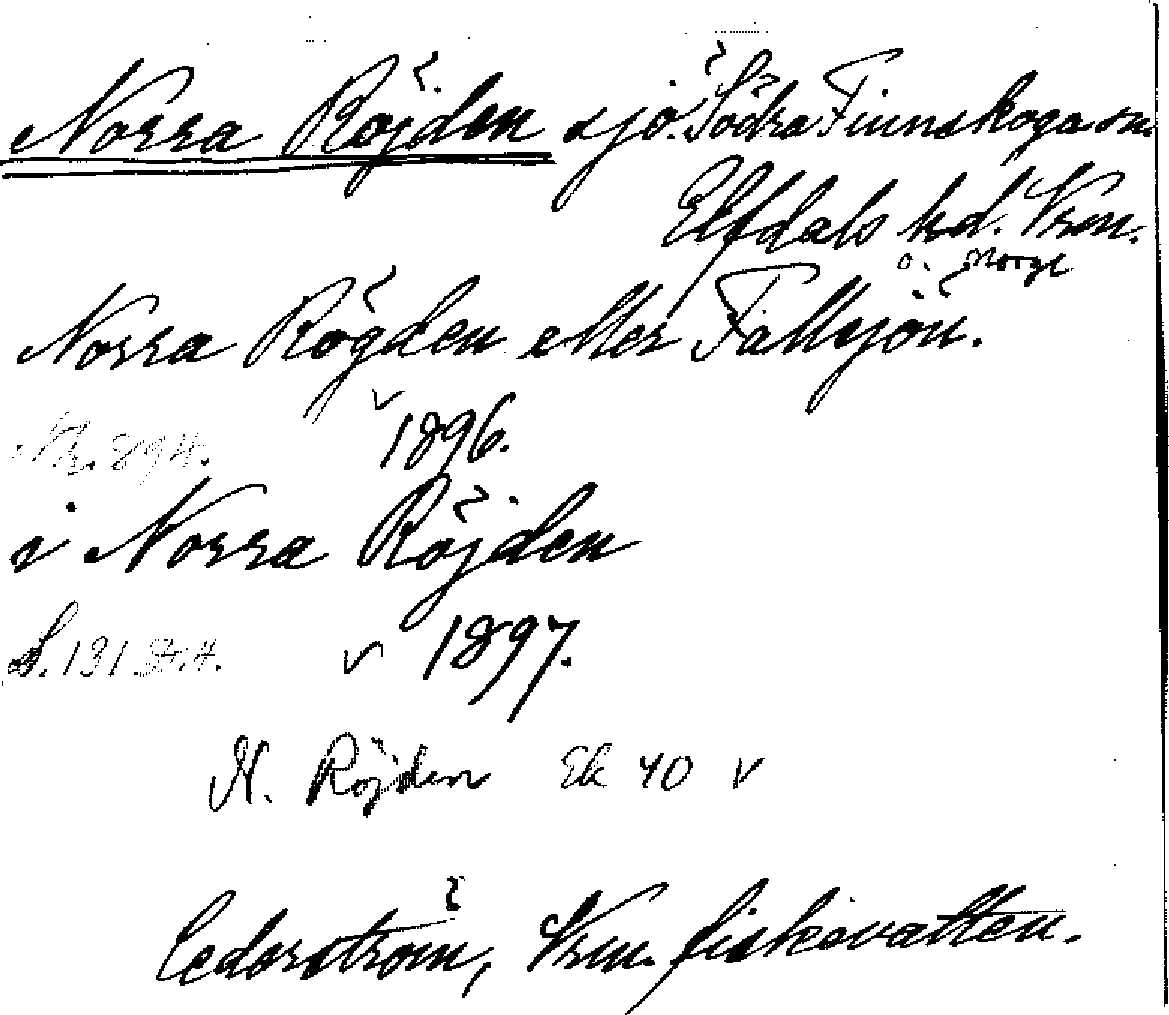 Norra Röjden sjö. Södra Finnskoga sn.
Elfdals hd. Vrm.
o. Norge
Norra Rögden eller Fallsjön.
1896.
i Norra Röjden
S. 131 v 1897.
N. Röjden Ek 40 v
Cederström, Vrm. fiskevatten.